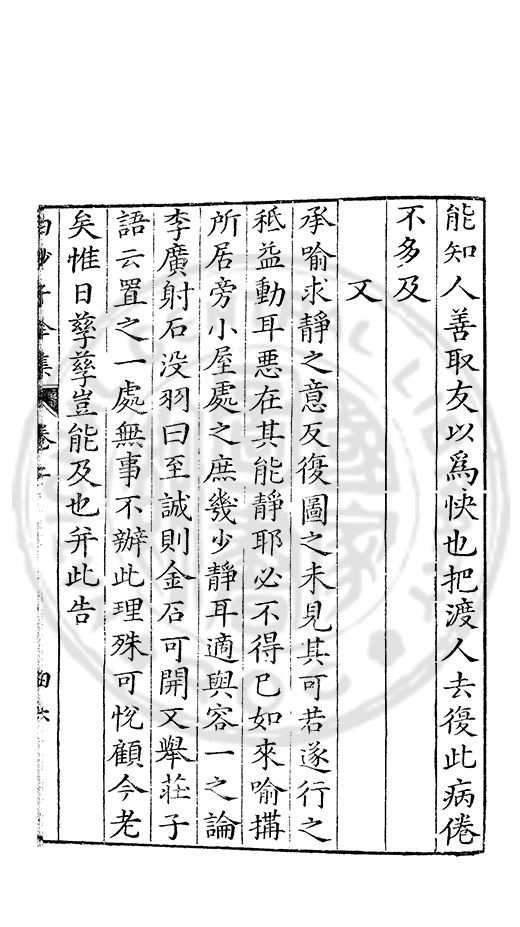 能知人善取友以爲快也把渡人去復此病倦
不多及
又
承喻求靜之意反復圖之未見其可若遂行之
秪益動耳惡在其能靜耶必不得已如來喻搆
所居旁小屋處之庶幾少靜耳適與容一之論
李廣射石没羽曰至誠則金石可開又舉莊子
語云置之一處無事不辦此理殊可悅顧今老
矣惟日孳孳豈能及也并此告
白沙子全集 卷之